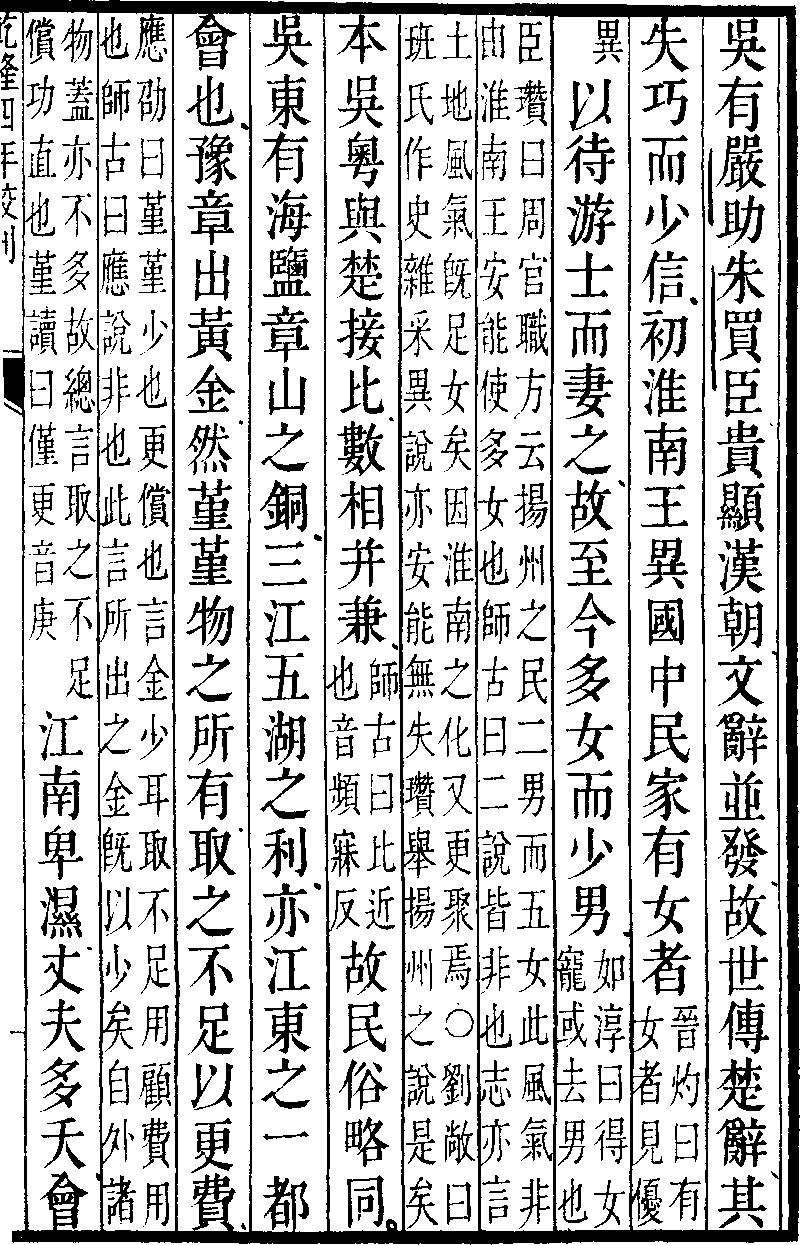 吳有嚴助朱買臣貴顯漢朝文辭並發故世傳楚辭其
失巧而少信初淮南王異國中民家有女者晉灼曰有女者見優
異以待游士而妻之故至今多女而少男如淳曰得女寵或去男也
臣瓚曰周官職方云揚州之民二男而五女此風氣非
由淮南王安能使多女也師古曰二說皆非也志亦言
土地風氣既足女矣因淮南之化又更聚焉○劉敞曰
班氏作史雜采異說亦安能無失瓚舉揚州之說是矣
本吳粵與楚接比數相并兼師古曰比近也音頻寐反故民俗略同。
吳東有海鹽章山之銅三江五湖之利亦江東之一都
會也豫章出黃金然堇堇物之所有取之不足以更費
應劭曰堇堇少也更償也言金少耳取不足用顧費用
也師古曰應說非也此言所出之金既以少矣自外諸
物蓋亦不多故總言取之不足償功直也堇讀曰僅更音庚江南卑濕丈夫多夭會
乾隆四年校刊